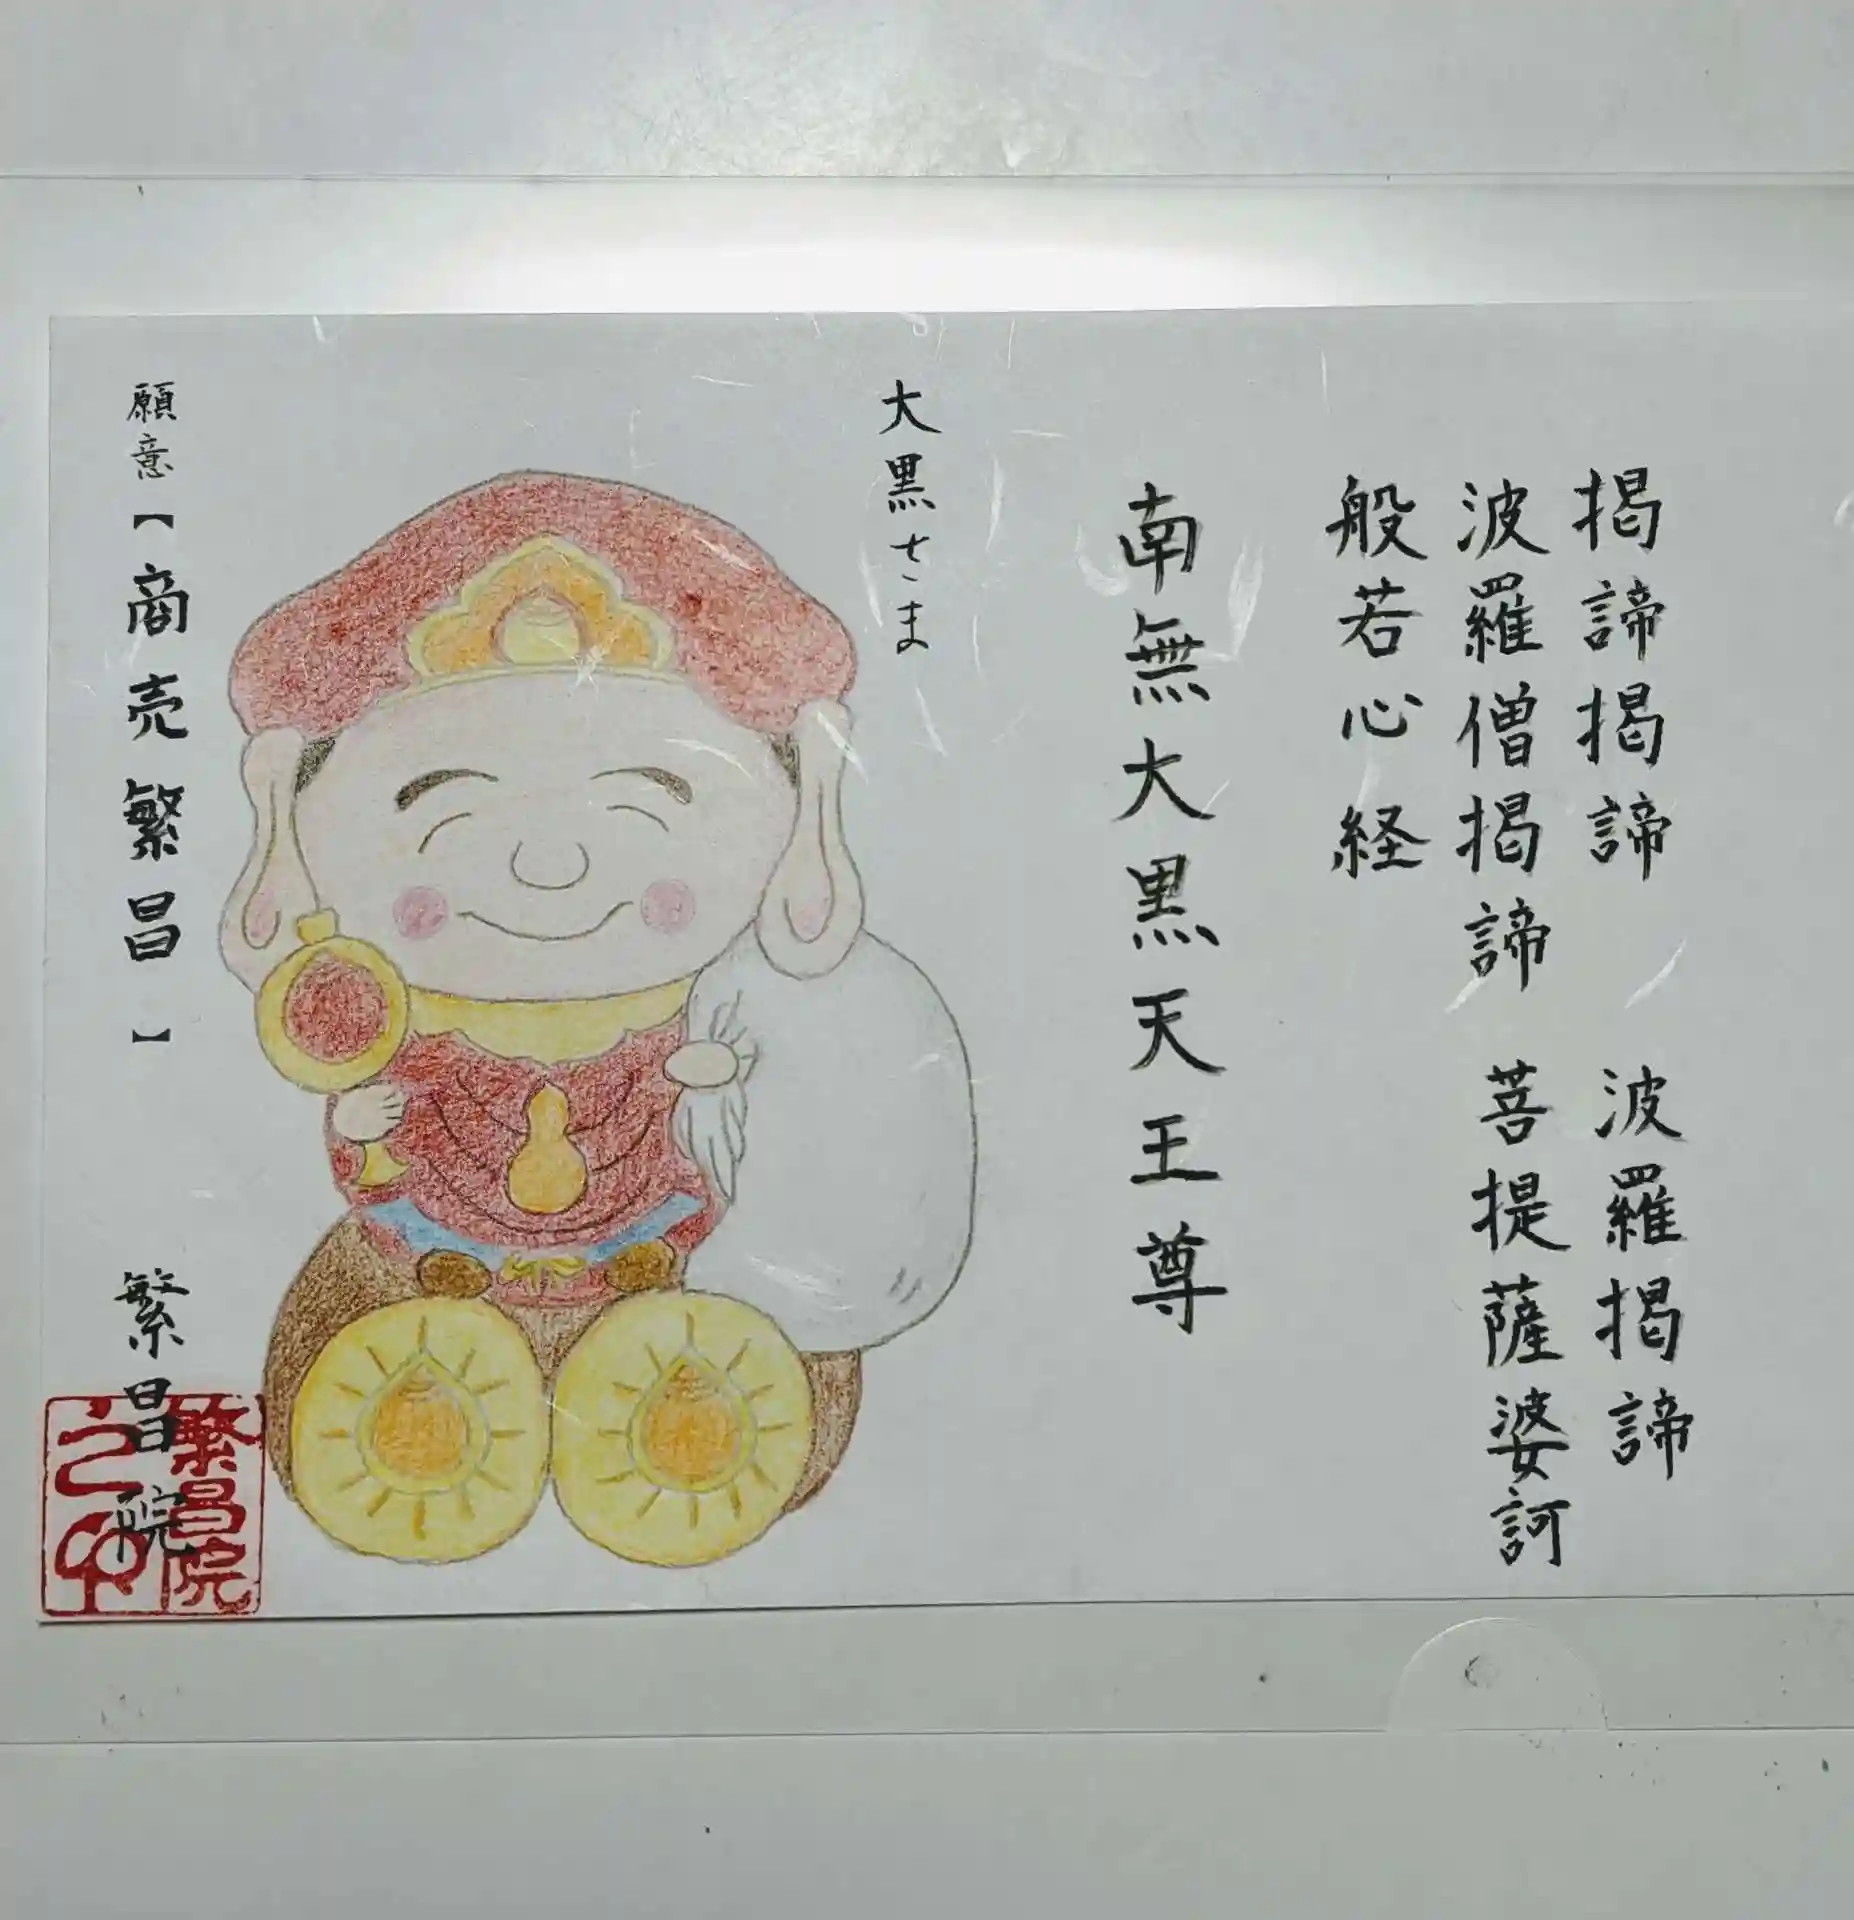 揭諦揭諦　波羅揭諦
波羅僧揭諦　菩提薩婆訶
般若心経
南無大黒天王尊
大黒さま
願意【商売繁昌】
繁昌院
繁昌院
之印